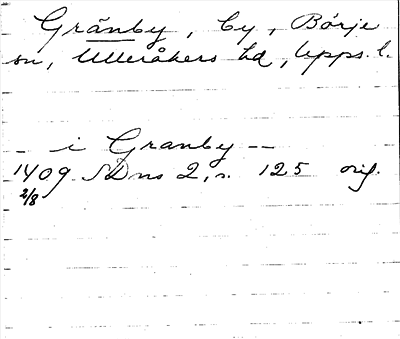 Gränby, by, Börje
sn, Ulleråkers hd, Upps. l.
- i Granby --
1409 SDns 2, s. 125 orig.
2/8